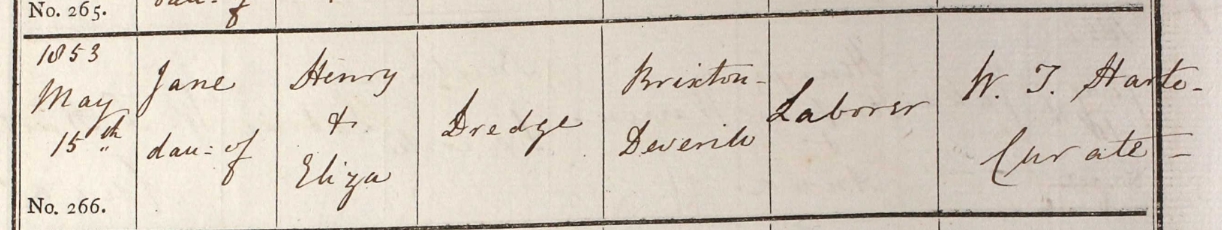 No. 265.
dau: of
1853
May
15th
No. 266.
Jane
dau: of
Henry
&
Eliza
Dredge
Brixton-
Deverill
Laborer
W. T. Harte-
Curate-